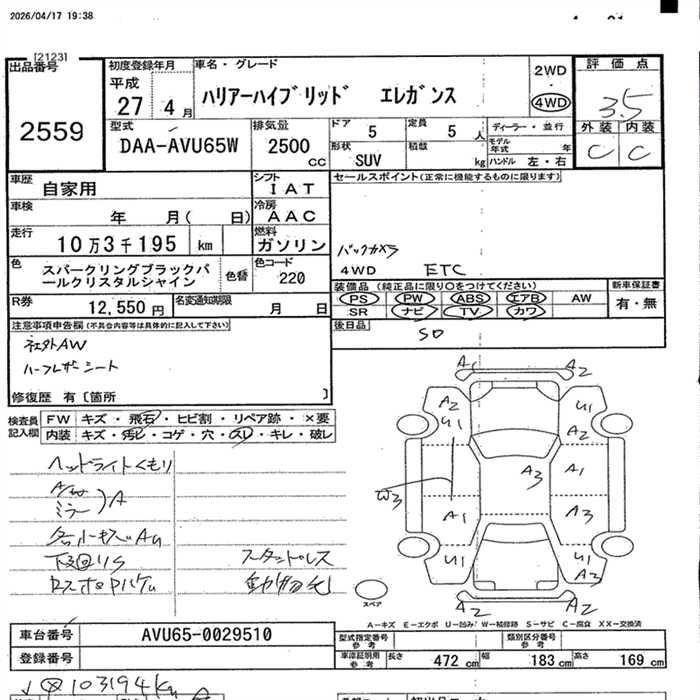 2026/04/17 19:38
[2123]
出品番号
2559
初度登録年月
平成
27 4 月
車名・グレード
ハリアーハイブリッド エレガンス
2WD
4WD
評価点
3.5
外装 内装
C C
型式
DAA-AVU65W
排気量
2500
cc
ドア
5
定員
5 人
ディーラー・並行
モデル年式 年
形状
SUV
積載
kg
ハンドル 左・右
車歴
自家用
シフト
IAT
車検
年 月( 日)
冷房
AAC
走行
10万3千195 km
燃料
ガソリン
色
スパークリングブラックパールクリスタルシャイン
色替
色コード
220
R券
12,550 円
名変通知期限
月 日
セールスポイント(正常に機能するものに限ります)
バックカメラ
4WD ETC
装備品 (純正品に限り○をつけてください)
PS PW ABS エアB AW
SR ナビ TV カワ
新車保証書
有・無
後日品
SD
注意事項申告欄(不具合内容等は具体的に記入して下さい)
社外AW
ハーフレザーシート
修復歴 有〔箇所 〕
検査員記入欄
FW キズ・飛石・ヒビ割・リペア跡・×要
内装 キズ・汚レ・コゲ・穴・スレ・キレ・破レ
ヘッドライトくもり
A/W
ミラー
)A
各小キズAU
下回りS
スタッドレス
動物毛
A1 A2
A2 U1 U1 A2
W3 A3 A1
A1 A3
U1 U1 A3
A2 A2
スペア
A－キズ E－エクボ U－凹み W－補修跡 S－サビ C－腐食 XX－交換済
車台番号
AVU65-0029510
登録番号
型式指定番号
参考
類別区分番号
参考
車庫証明用
参考
長さ 472 cm 幅 183 cm 高さ 169 cm
103194km